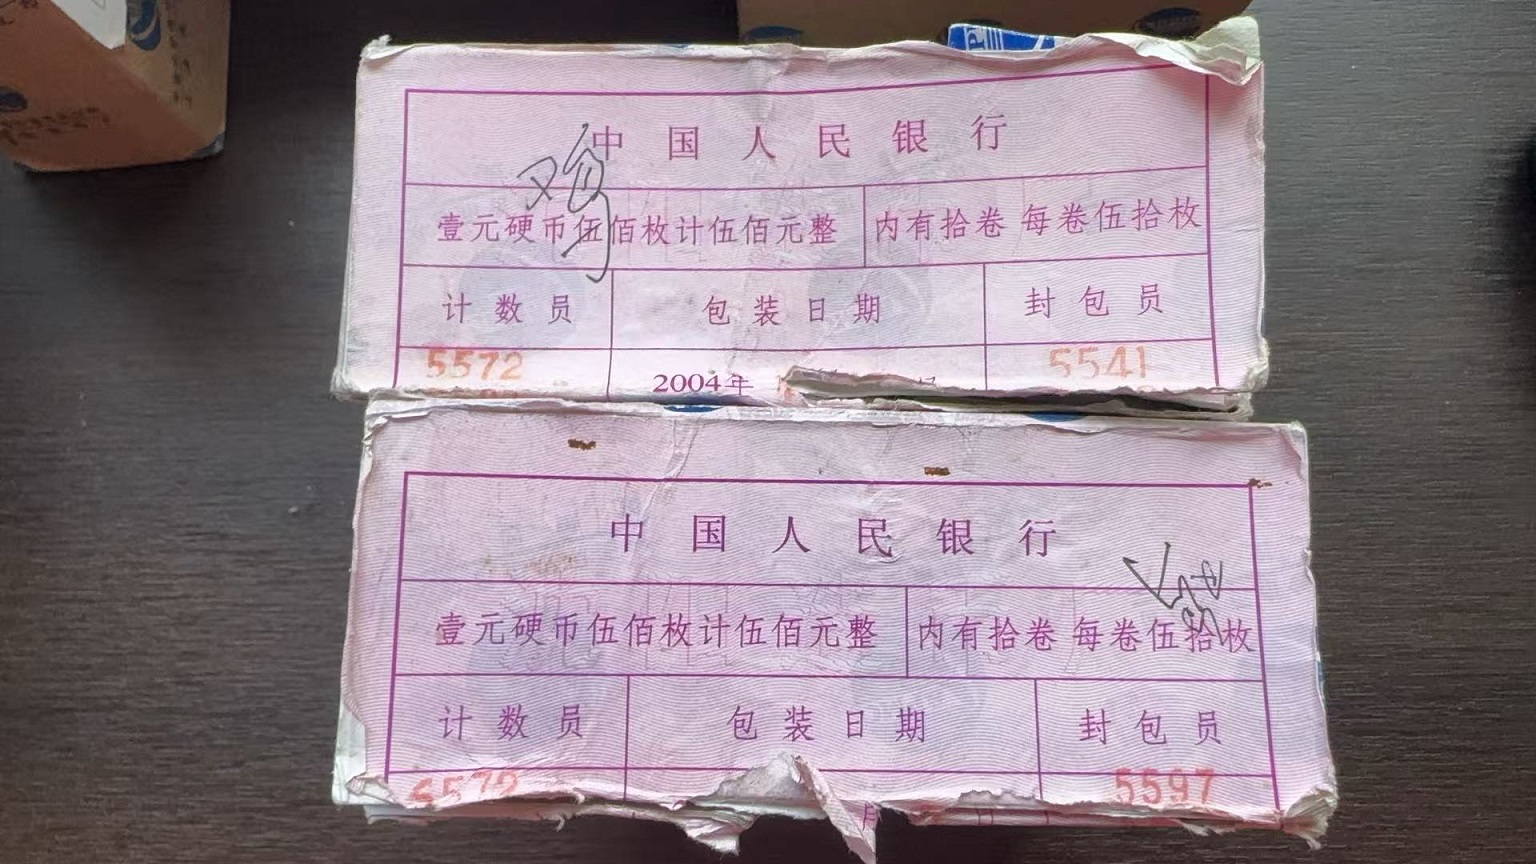 中国人民银行
壹元硬币伍佰枚计伍佰元整 内有拾卷 每卷伍拾枚
计数员 包装日期 封包员
5572 2004年 5541
中国人民银行
壹元硬币伍佰枚计伍佰元整 内有拾卷 每卷伍拾枚
计数员 包装日期 封包员
5572 5597
月